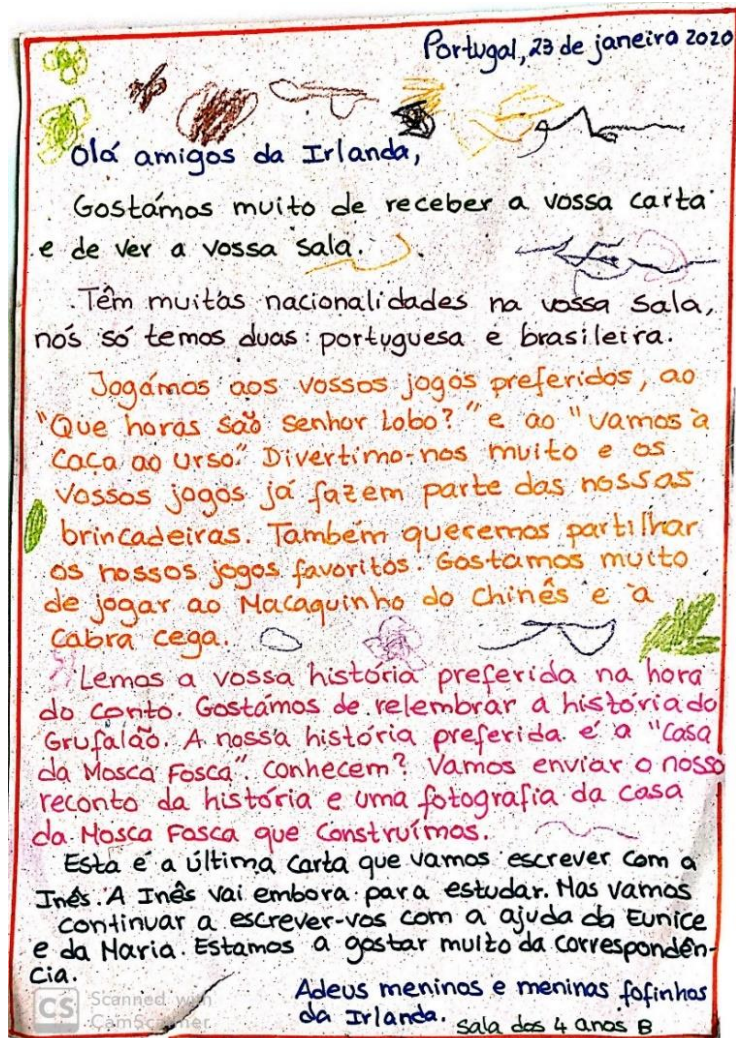 Portugal, 23 de janeiro 2020
Olá amigos da Irlanda,
Gostámos muito de receber a vossa carta
e de ver a vossa sala.
Têm muitas nacionalidades na vossa sala,
nós só temos duas: portuguesa e brasileira.
Jogámos aos vossos jogos preferidos, ao
"Que horas são senhor Lobo?" e ao "Vamos à
caça ao urso." Divertimo-nos muito e os
vossos jogos já fazem parte das nossas
brincadeiras. Também queremos partilhar
os nossos jogos favoritos. Gostamos muito
de jogar ao Macaquinho do Chinês e à
Cabra cega.
Lemos a vossa história preferida na hora
do conto. Gostámos de relembrar a história do
Grufalão. A nossa história preferida é a "Casa
da Mosca Fosca". Conhecem? Vamos enviar o nosso
reconto da história e uma fotografia da casa
da Mosca Fosca que construímos.
Esta é a última carta que vamos escrever com a
Inês. A Inês vai embora para estudar. Mas vamos
continuar a escrever-vos com a ajuda da Eunice
e da Maria. Estamos a gostar muito da correspondên-
cia.
Adeus meninos e meninas fofinhos
da Irlanda.
Sala dos 4 anos B
CS Scanned with
CamScanner